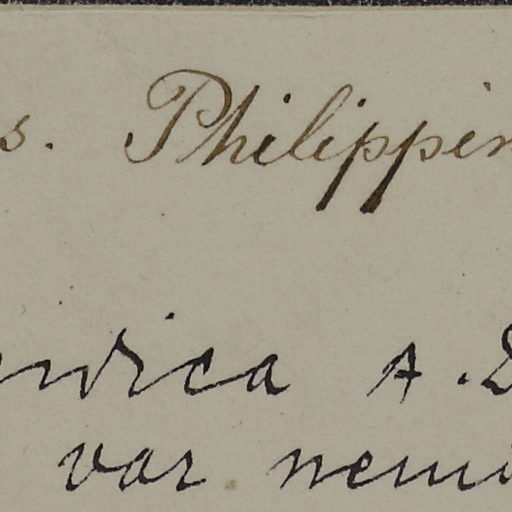 s. Philippin
ndica A. D
var nemo